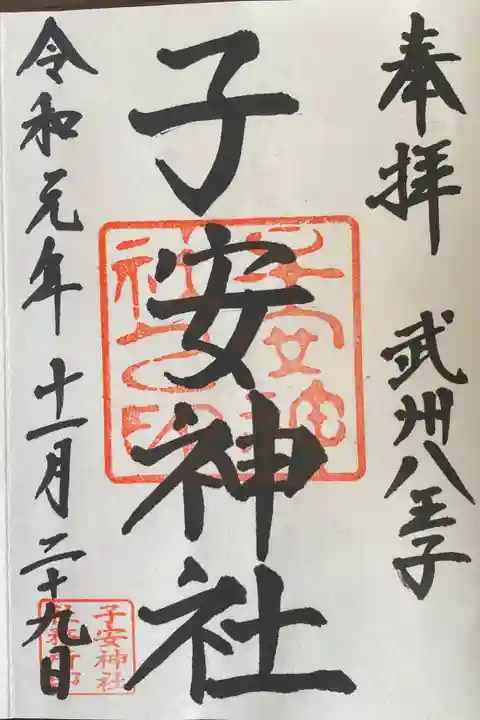 奉拝 武州八王子
子安神社
子安神社之印
令和元年十一月二十九日
子安神社
社務所印